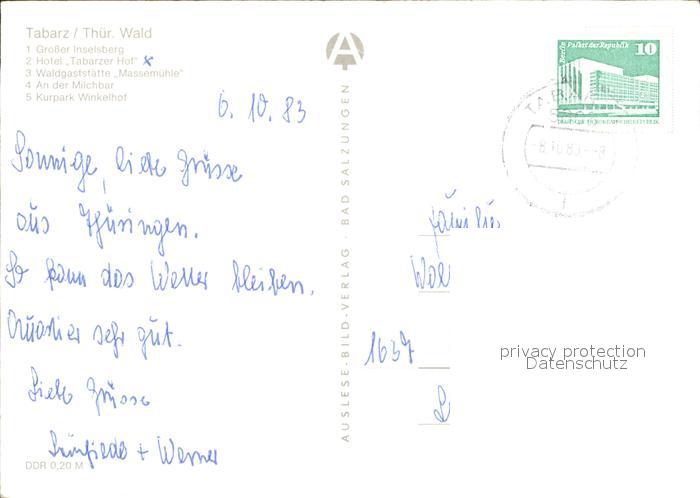 Tabarz / Thür. Wald
1 Großer Inselsberg
2 Hotel „Tabarzer Hof" x
3 Waldgaststätte „Massemühle"
4 An der Milchbar
5 Kurpark Winkelhof
6. 10. 83
Sonnige, liebe Grüsse
aus Thüringen.
So kann das Wetter bleiben.
Quartier sehr gut.
Liebe Grüsse
+ Werner
DDR 0,20 M
AUSLESE-BILD-VERLAG · BAD SALZUNGEN
A
Berlin Palast der Republik
10
TABARZ
Familie
1637
privacy protection
Datenschutz